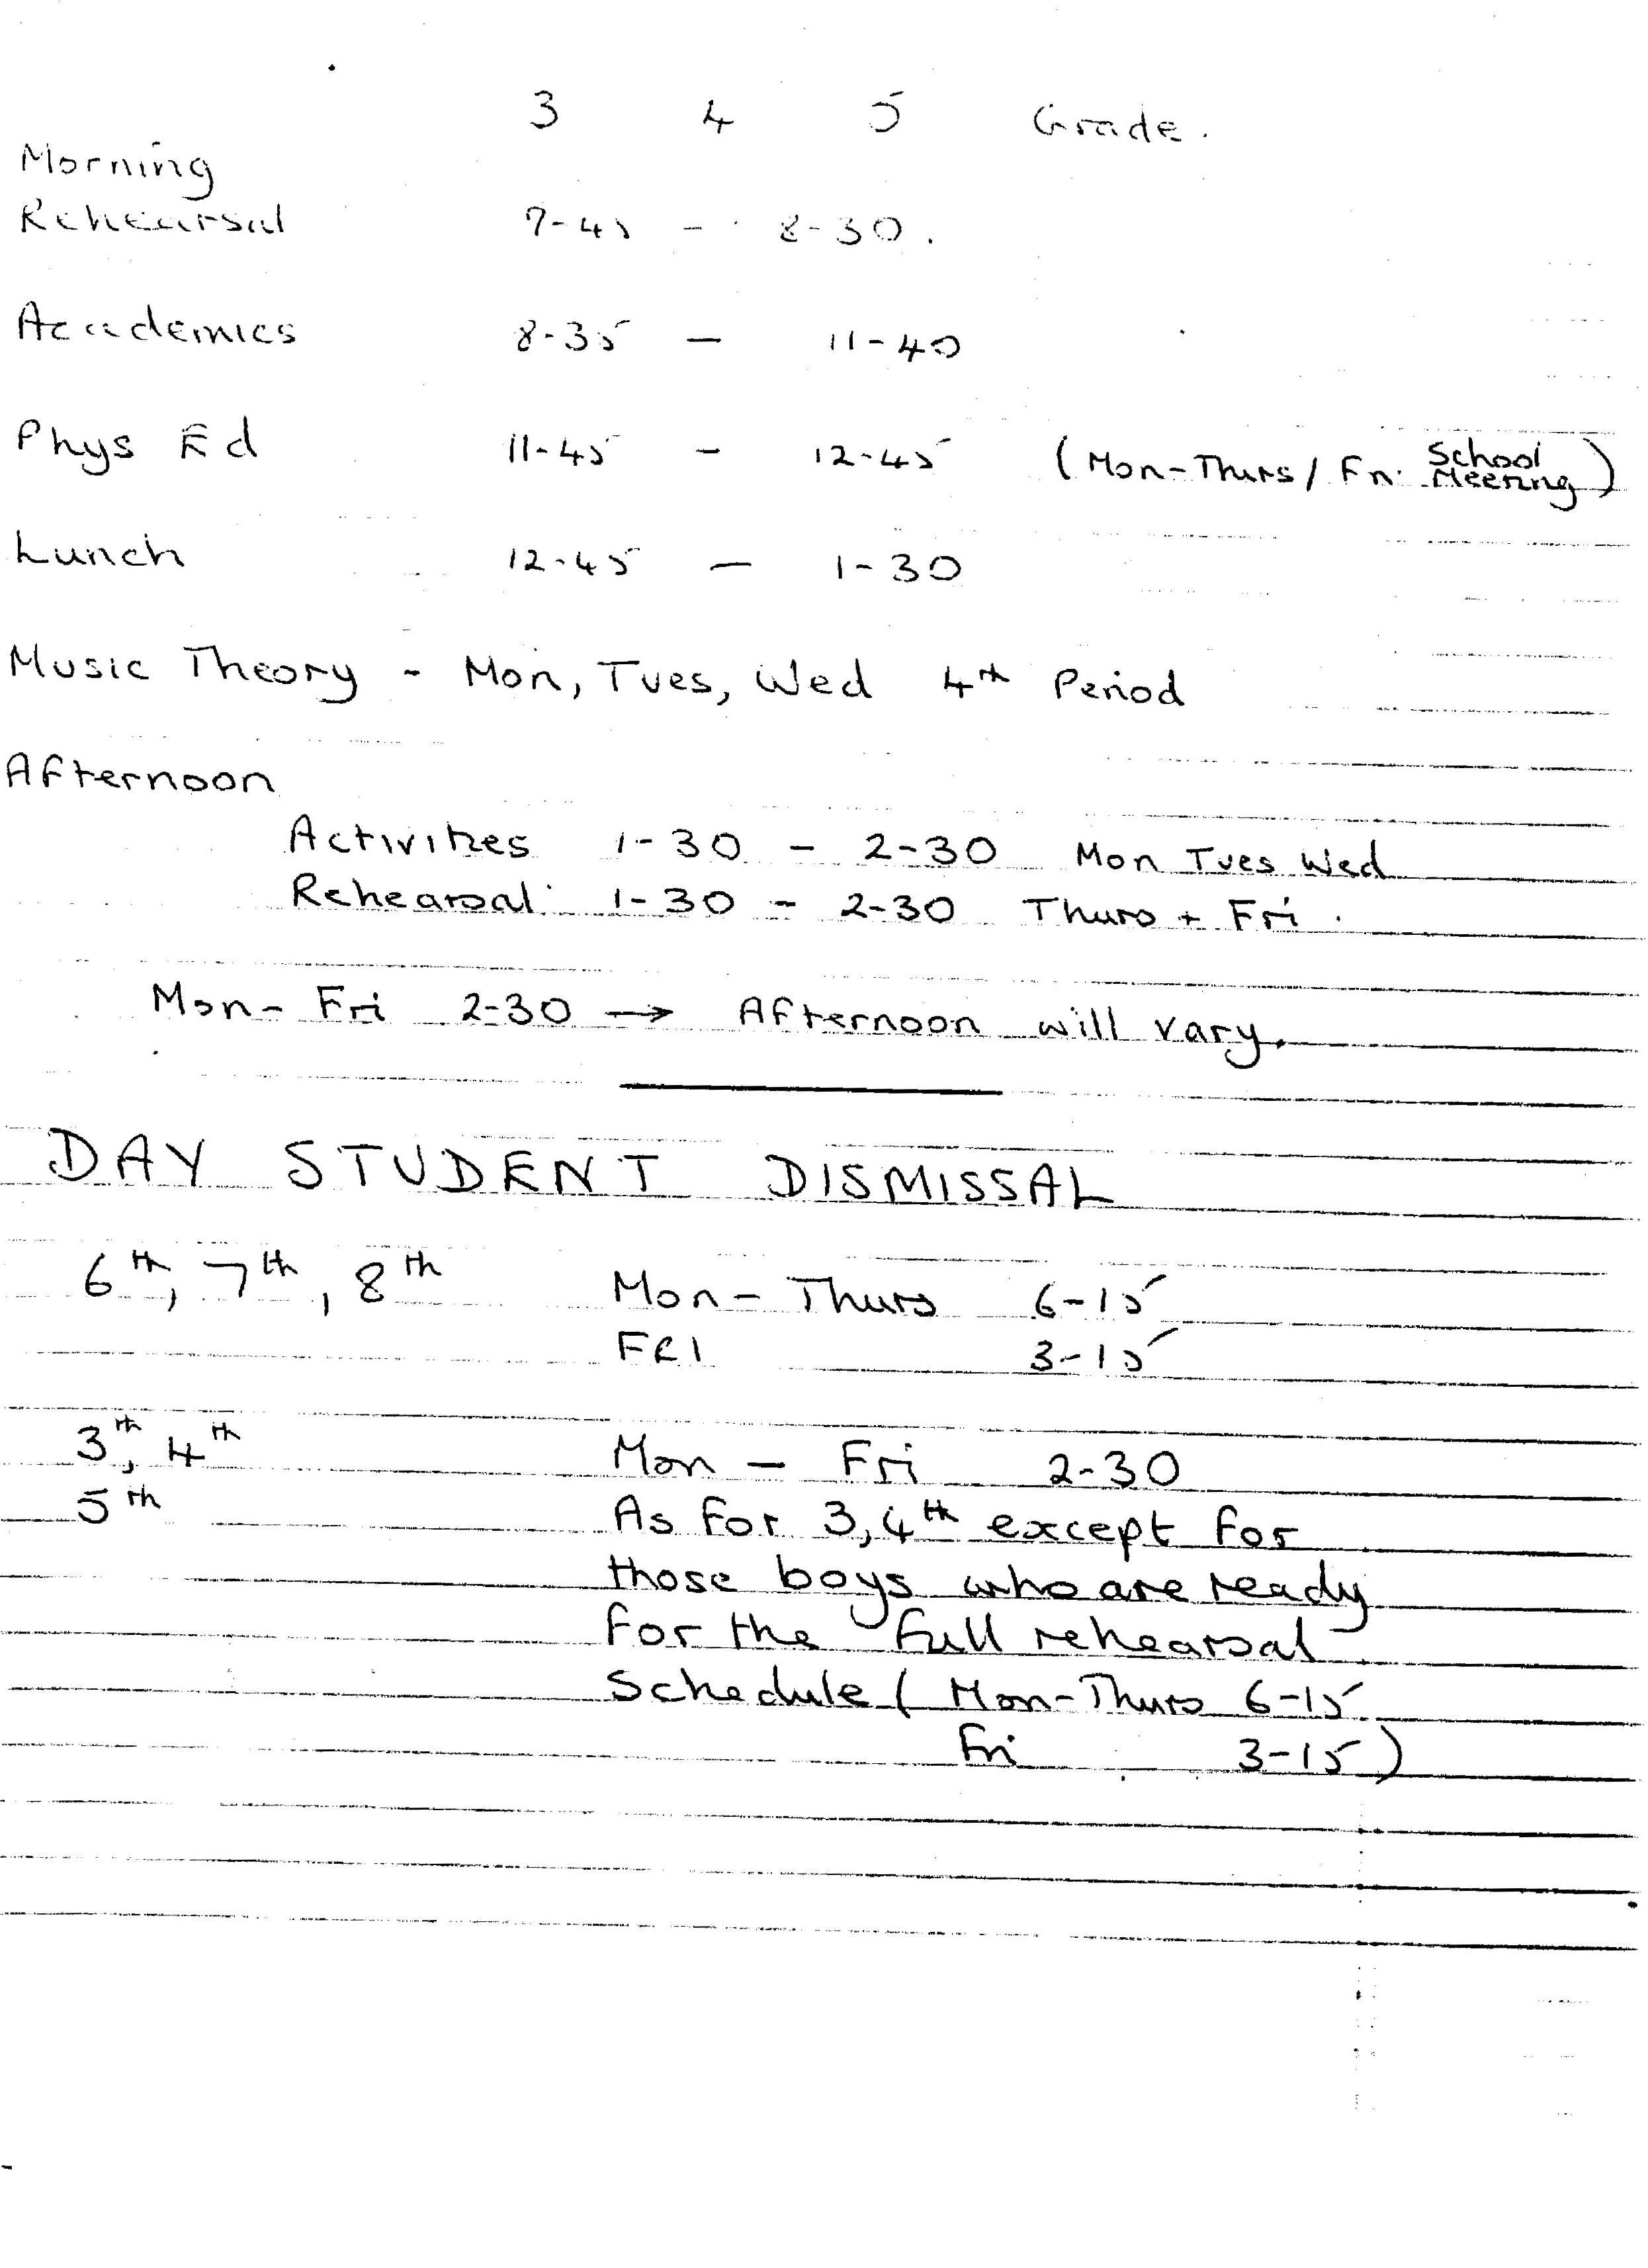 3 4 5 Grade.
Morning
Rehearsal 7-45 - 8-30.
Academics 8-35 - 11-40
Phys Ed 11-45 - 12-45 (Mon-Thurs / Fri. School Meeting)
Lunch 12-45 - 1-30
Music Theory - Mon, Tues, Wed 4th Period
Afternoon
Activities 1-30 - 2-30 Mon Tues Wed
Rehearsal 1-30 - 2-30 Thurs + Fri.
Mon - Fri 2-30 → Afternoon will vary.
DAY STUDENT DISMISSAL
6th, 7th, 8th Mon - Thurs 6-15
FRI 3-15
3th, 4th Mon - Fri 2-30
5th As for 3, 4th except for
those boys who are ready
for the full rehearsal
Schedule ( Mon-Thurs 6-15
Fri 3-15 )